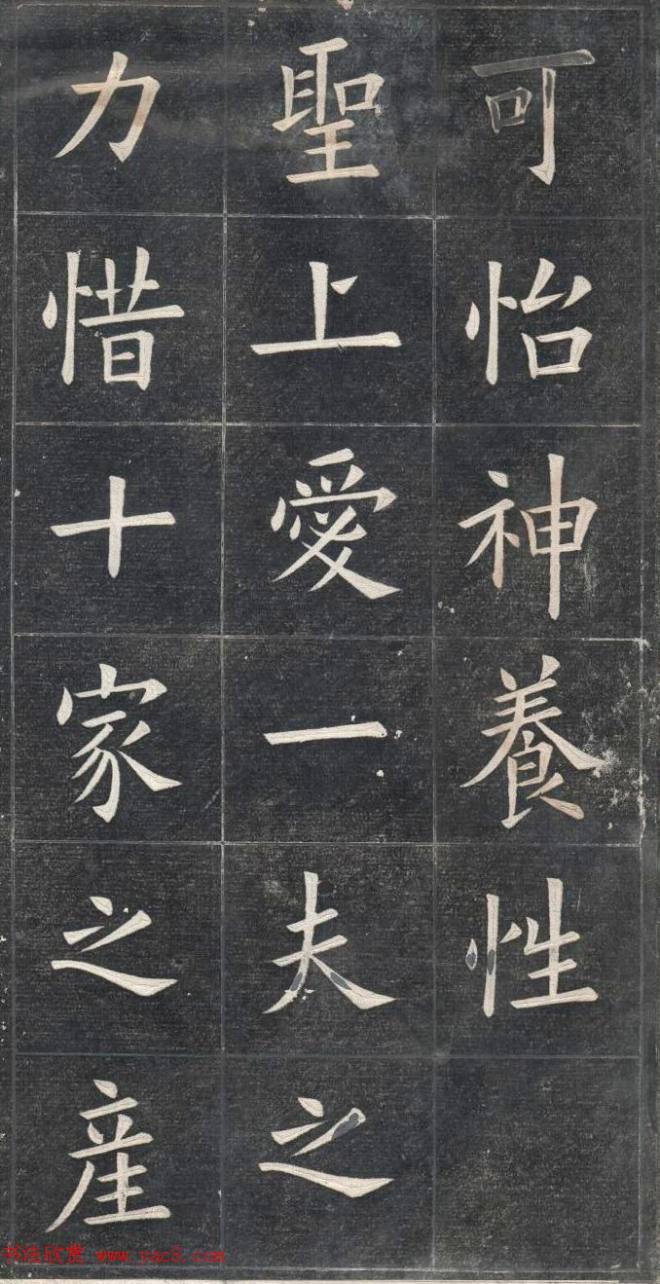 可怡神養性
聖上愛一夫之
力惜十家之産
书法欣赏 www.yac8.com